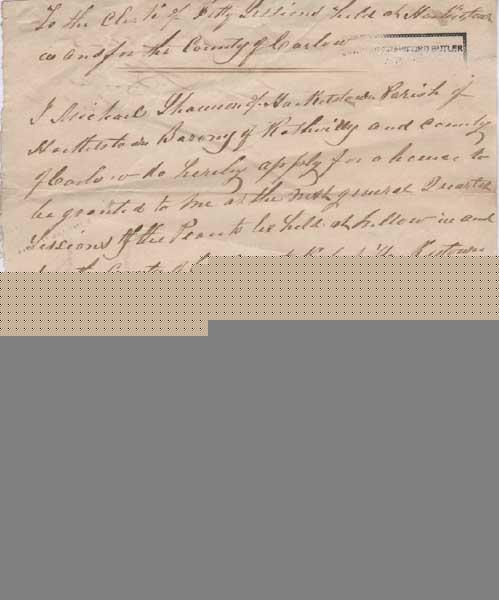 To the Clerk of Petty Sessions held at Hacketstown
in and for the County of Carlow
CRAWFORD BUTLER
I Michael Shannon of Hacketstown Parish of
Hacketstown Barony of Rathvilly and County
of Carlow do hereby apply for a license to
be granted to me at the next general Quarter
Sessions of the Peace to be held at Tullow in and
for the County of